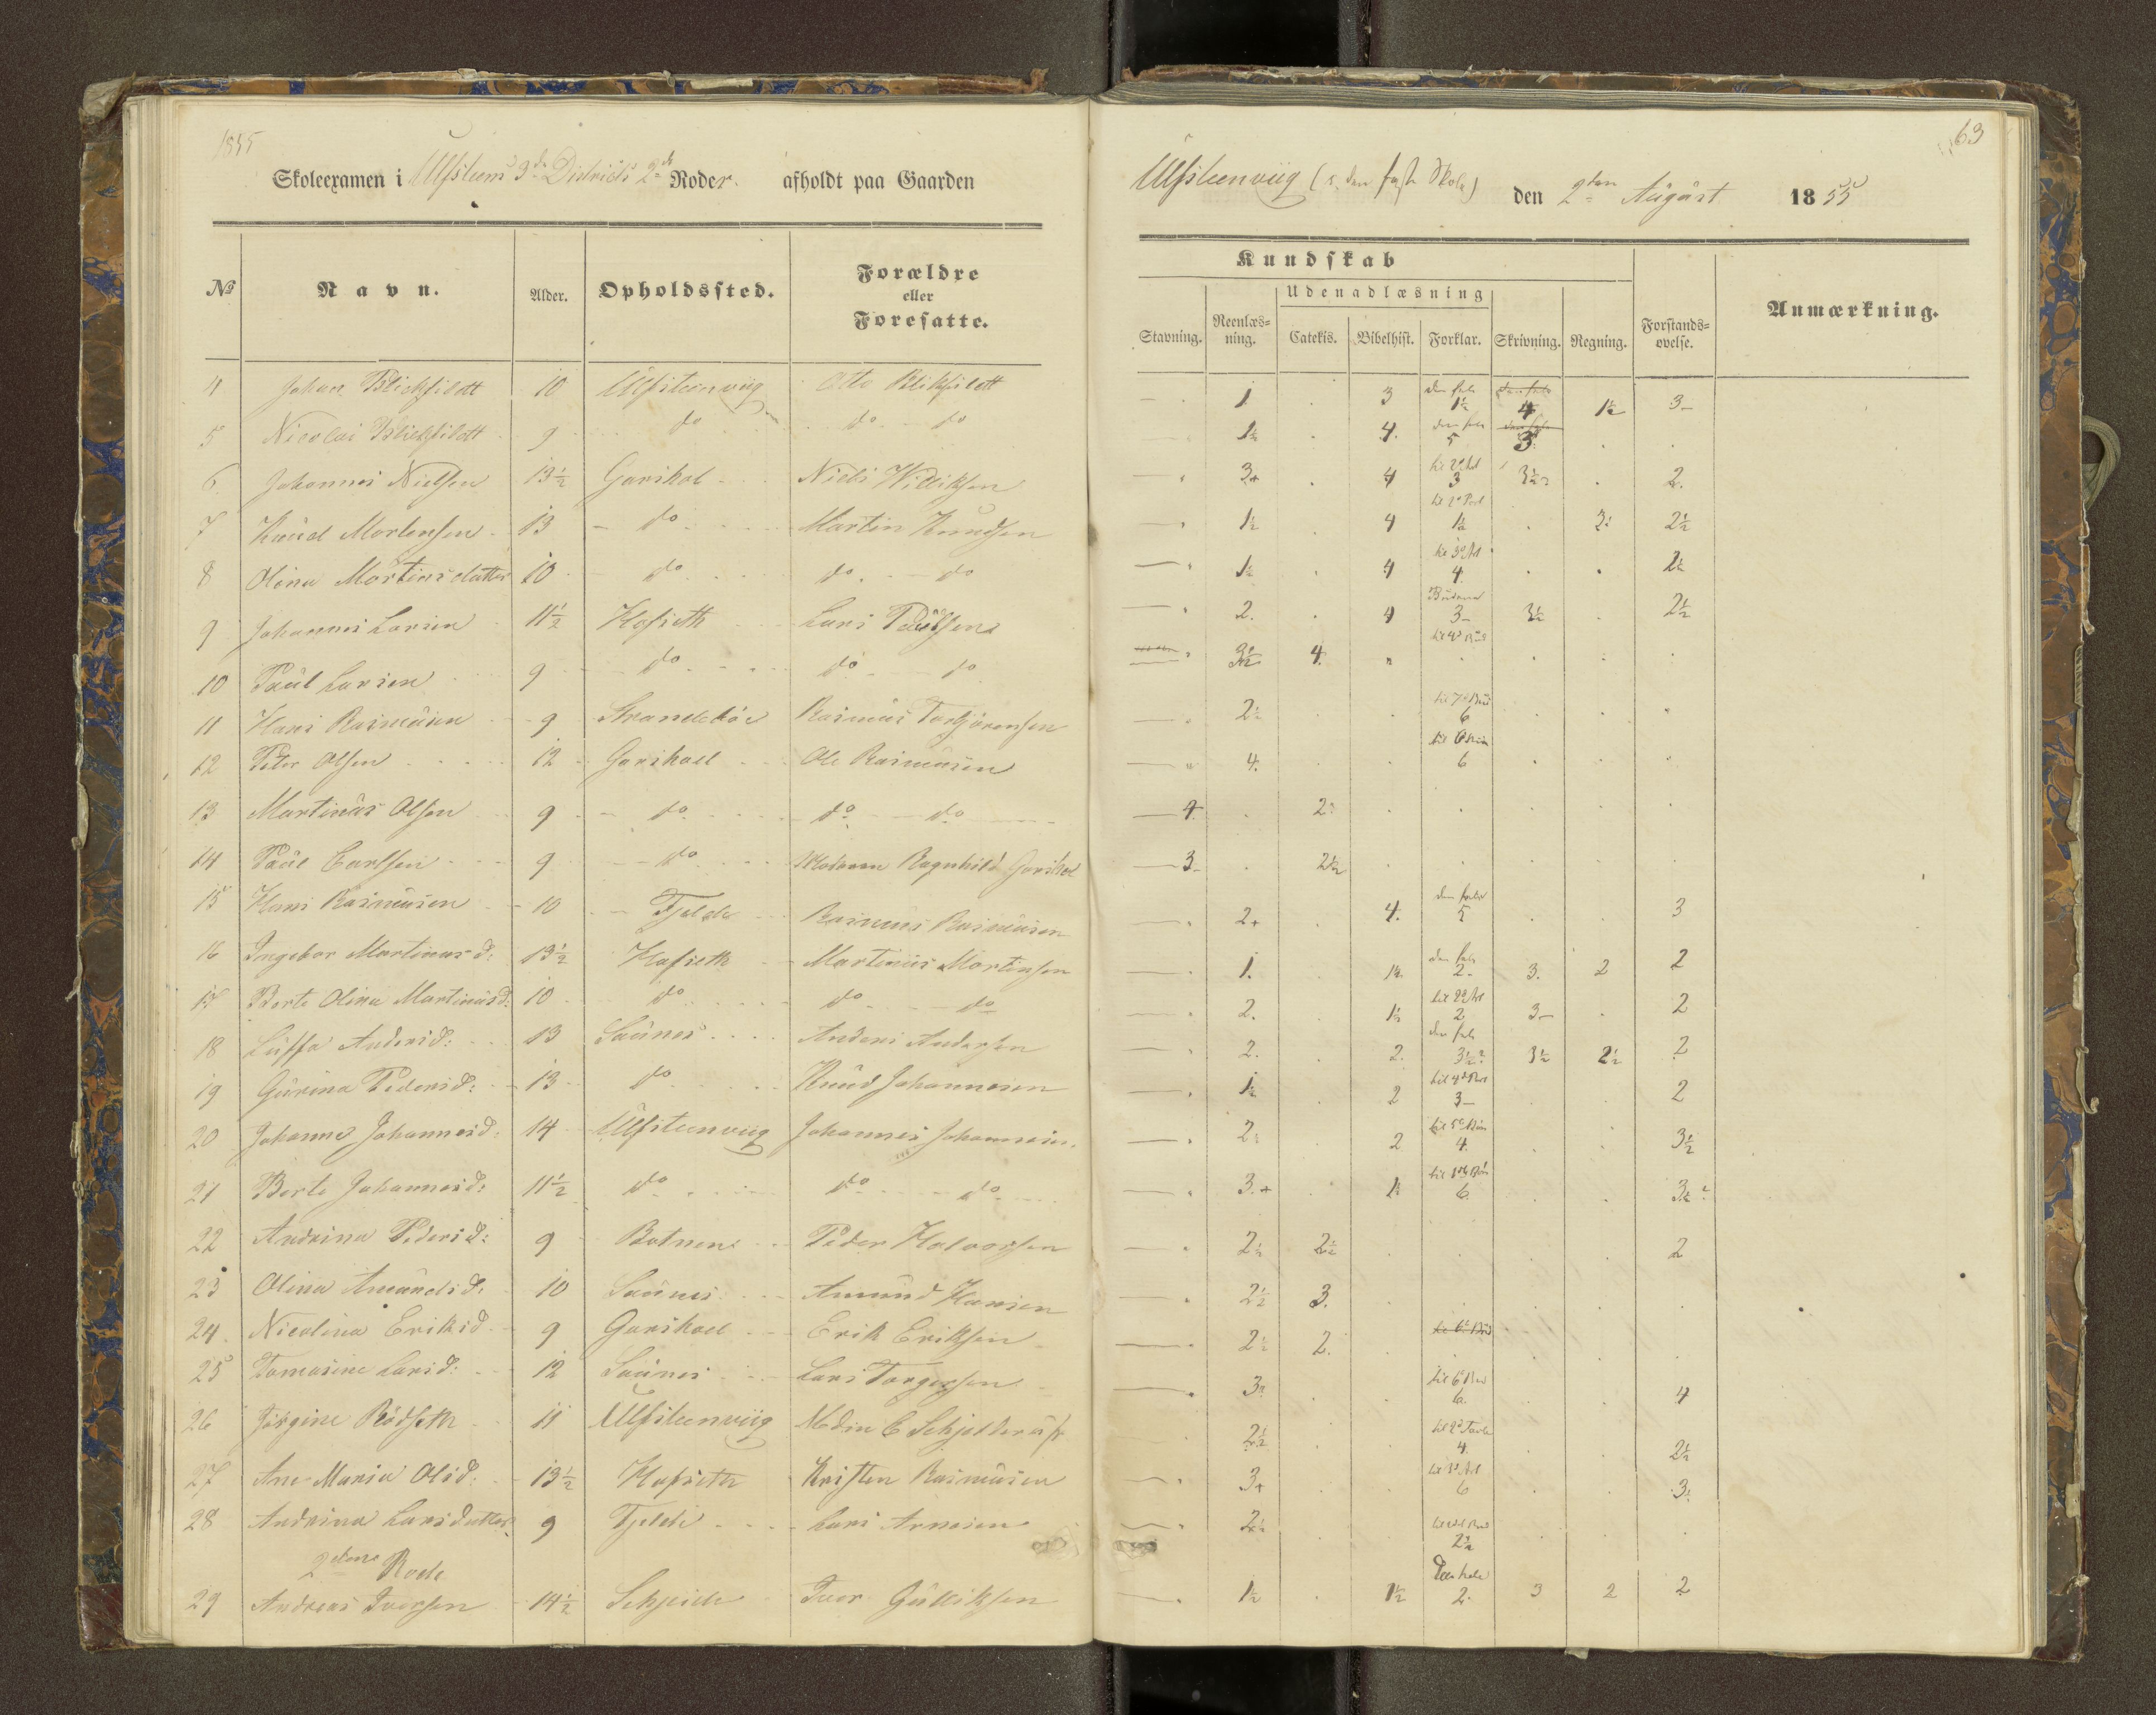 1855
63
Skoleexamen i Ulfsteens 3de Districts 2de Roder. afholdt paa Gaarden Ulfsteenviig (i den faste Skole) den 2den August 1855
Kundskab
Udenadlæsning
No Navn. Alder. Opholdssted. Forældre eller Foresatte. Stavning. Reenlæsning. Catekis. Bibelhist. Forklar. Skrivning. Regning. Forstandsøvelse. Anmærkning.
4 Johan Blichfildt 10 Ulfsteenviig Otto Blikfildt — 1 . 3 den hele 1½ 4 1½ 3-
5 Nicolai Blichfildt 9 do do do — 1½ . 4. den hele 5 3 . .
6 Johannes Nielsen 13½ Garshol Niels Williksen — 3+ . 4 til 2d Art 3 3½ . 2.
7 Knud Mortensen 13 do Martin Knudsen — 1½ . 4 1½ . 2½
8 Olina Martinsdatter 10 do do do — 1½ . 4 til 3d Art 4 . .
9 Johannes Larsen 11½ Hofseth Lars Paulsen — 2. . 4 3- 3½ . 2½
10 Paul Larsen 9 do do do — 4.
11 Hans Rasmusen 9 Strandebøe Rasmus Torbjørensen — 2½ 6
12 Peter Olsen 12 Garshoel Ole Rasmusen — 4. 6
13 Martinus Olsen 9 do do do — 4 . 2
14 Paul Carlsen 9 do Madam Ragnhild Garshol — 3- . 2½
15 Hans Rasmusen 10 Fjelde Rasmus Rasmusen — 2+ . 4. den hele 5 . . 3
16 Ingebor Martinusd: 13½ Hofseth Martinus Mortensen — 1. . 1½ den hele 2- 3. 2 2
17 Berte Olina Martinusd: 10 do do do — 2. . 1½ til 2d Art 2 3- . 2
18 Andersd: 13 Saunes Anders Andersen — 2. . 2. den hele 3½ 3½ 2½ 2
19 Gurina Pedersd: 13 do Knud Johannesen — 1½ . 2 til 4d Art 3- . . 2
20 Johanne Johannesd: 14 Ulfsteenviig Johannes Johannesen. — 2 . 2 4. . . 3½
21 Berte Johannesd: 11½ do do do — 3+ . 1½ 6 . . 3½
22 Andrina Pedersd: 9 Botnen Peder Halvorsen — 2½ 2½ . . . . 2
23 Olina Amundsd: 10 Saunes Amund Hansen — 2½ 3.
24. Nicolina Eriksd 9 Garshoel Erik Eriksen — 2½ 2.
25 Tomasine Larsd: 12 Saunes Lars Torgersen — 3 6 4
26 Jørgine Rødseth 11 Ulfsteenviig Mdm C Schjelderup — 2½ 4. 2½
27 Ane Maria Olsd. 13½ Hofseth Kristen Rasmusen — 3+ til 3d Art 6 3
28 Andrina Larsdatter 9 Fjelde Lars Arnesen — 2½ 2½
2den Rode
29 Andreas Iversen 14½ Schjeide Iver Gulliksen — 1½ . 1½ Den hele 2. 3 2 2